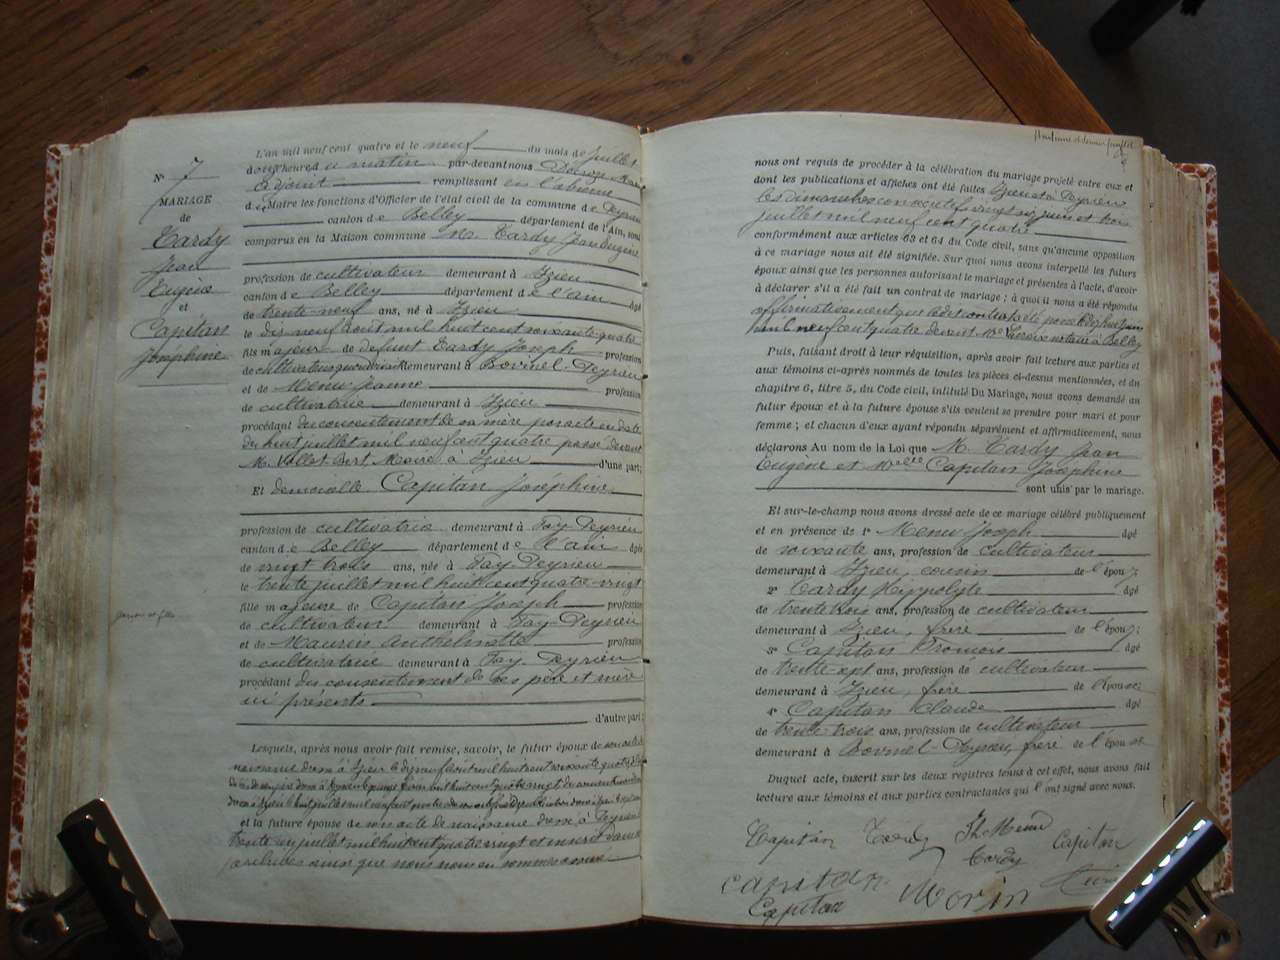 N° 7
MARIAGE
de
Tardy
Jean
Eugène
et
Capitan
Joséphine
L'an mil neuf cent quatre et le neuf du mois de juillet
à onze heures du matin par-devant nous
adjoint remplissant en l'absence
du Maire les fonctions d'Officier de l'état civil de la commune de Peyrieu
canton de Belley département de l'Ain, sont
comparus en la Maison commune M. Tardy Jean Eugène
profession de cultivateur demeurant à Izieu
canton de Belley département de l'ain âgé
de trente-neuf ans, né à Izieu
le dix neuf août mil huit cent soixante quatre
fils majeur de défunt Tardy Joseph profession
de cultivateur demeurant à Bovinel-Peyrieu
et de Menu Jeanne profession
de cultivatrice demeurant à Izieu
procédant du consentement de sa mère par acte en date
du huit juillet mil neuf cent quatre passé devant
M. Vallet Bert Maire à Izieu d'une part;
Et demoiselle Capitan Joséphine
profession de cultivatrice demeurant à Fay-Peyrieu
canton de Belley département de l'ain âgée
de vingt trois ans, née à Fay-Peyrieu
le trente juillet mil huit cent quatre-vingt
fille majeure de Capitan Joseph profession
de cultivateur demeurant à Fay-Peyrieu
et de Maurin Anthelmette profession
de cultivatrice demeurant à Fay Peyrieu
procédant du consentement de ses père et mère
ici présents
d'autre part;
Lesquels, après nous avoir fait remise, savoir, le futur époux de son acte de
naissance dressé à Izieu le dix neuf août mil huit cent soixante quatre
dressé à Izieu le huit juillet mil neuf cent quatre
et la future épouse de son acte de naissance dressé à Peyrieu
trente un juillet mil huit cent quatre vingt et inscrit dans
archives ainsi que nous nous en sommes assuré
nous ont requis de procéder à la célébration du mariage projeté entre eux et
dont les publications et affiches ont été faites Izieu et à Peyrieu
les dimanches consécutifs vingt six juin et trois
juillet mil neuf cent quatre
conformément aux articles 63 et 64 du Code civil, sans qu'aucune opposition
à ce mariage nous ait été signifiée. Sur quoi nous avons interpellé les futurs
époux ainsi que les personnes autorisant le mariage et présentes à l'acte, d'avoir
à déclarer s'il a été fait un contrat de mariage; à quoi il nous a été répondu
affirmativement que le dit contrat a été passé le dix huit juin
mil neuf cent quatre devant Me notaire à Belley
Puis, faisant droit à leur réquisition, après avoir fait lecture aux parties et
aux témoins ci-après nommés de toutes les pièces ci-dessus mentionnées, et du
chapitre 6, titre 5, du Code civil, intitulé Du Mariage, nous avons demandé au
futur époux et à la future épouse s'ils veulent se prendre pour mari et pour
femme; et chacun d'eux ayant répondu séparément et affirmativement, nous
déclarons Au nom de la Loi que M. Tardy Jean
Eugène et Melle Capitan Joséphine
sont unis par le mariage.
Et sur-le-champ nous avons dressé acte de ce mariage célébré publiquement
et en présence de 1° Menu Joseph âgé
de soixante ans, profession de cultivateur
demeurant à Izieu, cousin de l'époux;
2° Tardy Hippolyte âgé
de trente trois ans, profession de cultivateur
demeurant à Izieu, frère de l'époux;
3° Capitan François âgé
de trente-sept ans, profession de cultivateur
demeurant à Izieu, frère de l'épouse
4° Capitan Claude âgé
de trente trois ans, profession de cultivateur
demeurant à Bovinel-Peyrieu, frère de l'épouse
Duquel acte, inscrit sur les deux registres tenus à cet effet, nous avons fait
lecture aux témoins et aux parties contractantes qui l'ont signé avec nous.
Capitan Tardy Jh Menu Capitan
Tardy
capitan Morin
Capitan